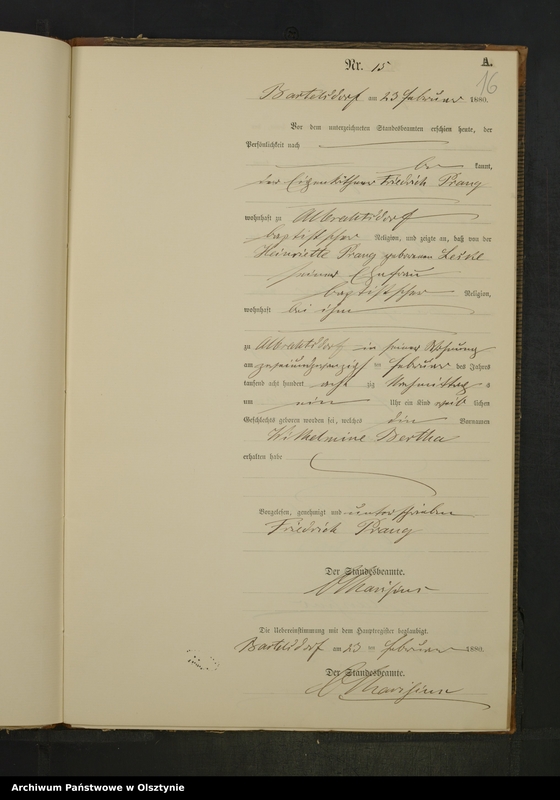 A.
Nr. 15
16
Bartelsdorf am 23 Februar 1880.
Vor dem unterzeichneten Standesbeamten erschien heute, der
Persönlichkeit nach
be kannt,
der Eigenkäthner Friedrich Prang
wohnhaft zu Albrechtsdorf
baptistischer Religion, und zeigte an, daß von der
Heinriette Prang geborenen
seiner Ehefrau
baptistischer Religion,
wohnhaft bei ihm
zu Albrechtsdorf in seiner Wohnung
am zweiundzwanzigsten Februar des Jahres
tausend acht hundert acht zig Nachmittag s
um Uhr ein Kind weib lichen
Geschlechts geboren worden sei, welches die Vornamen
Wilhelmine Bertha
erhalten habe
Vorgelesen, genehmigt und unterschrieben
Friedrich Prang
Der Standesbeamte.
Die Uebereinstimmung mit dem Hauptregister beglaubigt.
Bartelsdorf am 23 ten Februar 1880.
Der Standesbeamte.
Archiwum Państwowe w Olsztynie